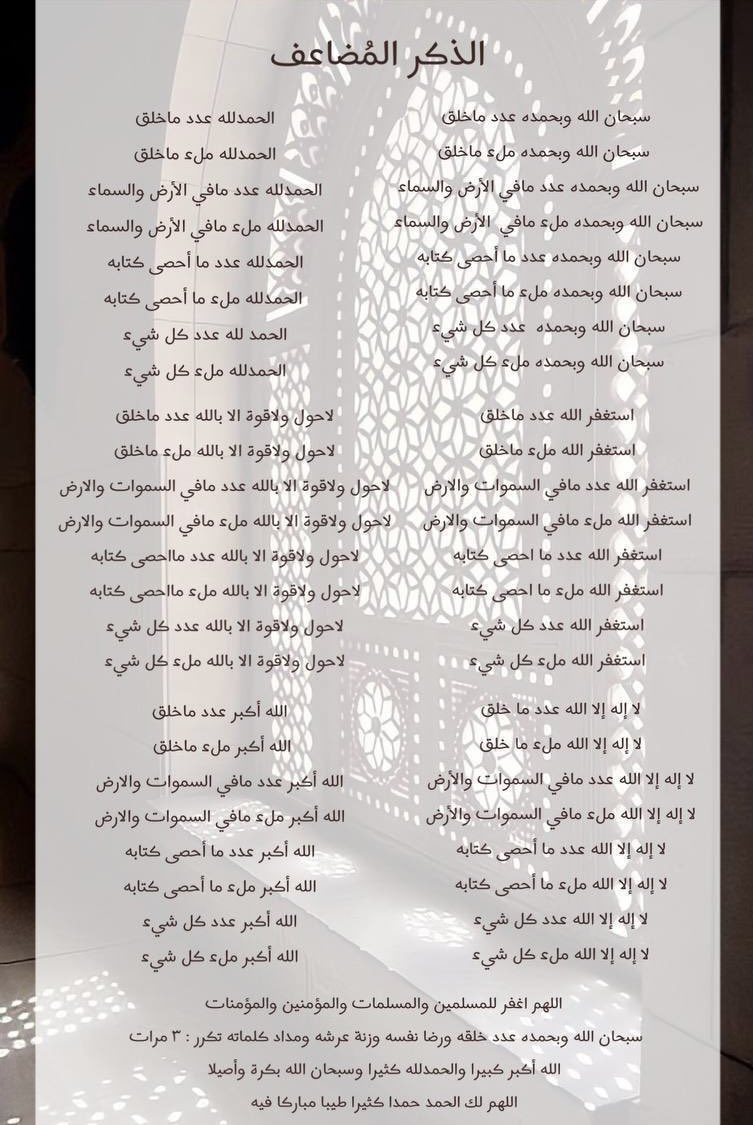 الذكر المُضاعف
سبحان الله وبحمده عدد ماخلق
سبحان الله وبحمده ملء ماخلق
سبحان الله وبحمده عدد مافي الأرض والسماء
سبحان الله وبحمده ملء مافي الأرض والسماء
سبحان الله وبحمده عدد ما أحصى كتابه
سبحان الله وبحمده ملء ما أحصى كتابه
سبحان الله وبحمده عدد كل شيء
سبحان الله وبحمده ملء كل شيء
الحمدلله عدد ماخلق
الحمدلله ملء ماخلق
الحمدلله عدد مافي الأرض والسماء
الحمدلله ملء مافي الأرض والسماء
الحمدلله عدد ما أحصى كتابه
الحمدلله ملء ما أحصى كتابه
الحمد لله عدد كل شيء
الحمدلله ملء كل شيء
استغفر الله عدد ماخلق
استغفر الله ملء ماخلق
استغفر الله عدد مافي السموات والارض
استغفر الله ملء مافي السموات والارض
استغفر الله عدد ما احصى كتابه
استغفر الله ملء ما احصى كتابه
استغفر الله عدد كل شيء
استغفر الله ملء كل شيء
لاحول ولاقوة الا بالله عدد ماخلق
لاحول ولاقوة الا بالله ملء ماخلق
لاحول ولاقوة الا بالله عدد مافي السموات والارض
لاحول ولاقوة الا بالله ملء مافي السموات والارض
لاحول ولاقوة الا بالله عدد مااحصى كتابه
لاحول ولاقوة الا بالله ملء مااحصى كتابه
لاحول ولاقوة الا بالله عدد كل شيء
لاحول ولاقوة الا بالله ملء كل شيء
لا إله إلا الله عدد ما خلق
لا إله إلا الله ملء ما خلق
لا إله إلا الله عدد مافي السموات والأرض
لا إله إلا الله ملء مافي السموات والأرض
لا إله إلا الله عدد ما أحصى كتابه
لا إله إلا الله ملء ما أحصى كتابه
لا إله إلا الله عدد كل شيء
لا إله إلا الله ملء كل شيء
الله أكبر عدد ماخلق
الله أكبر ملء ماخلق
الله أكبر عدد مافي السموات والارض
الله أكبر ملء مافي السموات والارض
الله أكبر عدد ما أحصى كتابه
الله أكبر ملء ما أحصى كتابه
الله أكبر عدد كل شيء
الله أكبر ملء كل شيء
اللهم اغفر للمسلمين والمسلمات والمؤمنين والمؤمنات
سبحان الله وبحمده عدد خلقه ورضا نفسه وزنة عرشه ومداد كلماته تكرر : ٣ مرات
الله أكبر كبيرا والحمدلله كثيرا وسبحان الله بكرة وأصيلا
اللهم لك الحمد حمدا كثيرا طيبا مباركا فيه